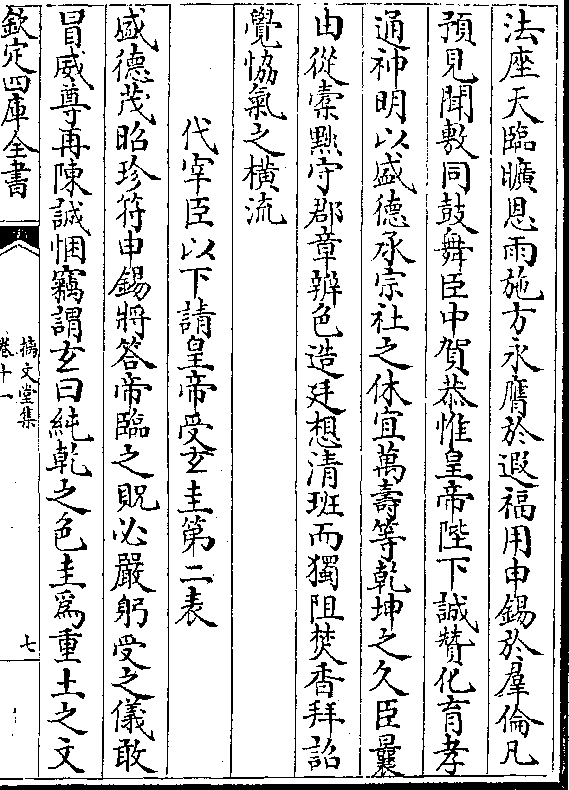 法座天臨曠恩雨施方永膺於遐福用申錫於羣倫凡
預見聞敷同鼓舞臣中賀恭惟皇帝陛下誠贊化育孝
通神明以盛德承宗社之休宜萬壽等乾坤之久臣曩
由從橐黙守郡章辨色造廷想清班而獨阻焚香拜詔
覺恊氣之橫流
代宰臣以下請皇帝受玄圭第二表
盛德茂昭珍符申錫將答帝臨之貺必嚴躬受之儀敢
冒威尊再陳誠悃竊謂玄曰純乾之色圭爲重土之文
欽定四庫全書
摛文堂集
卷十一
七